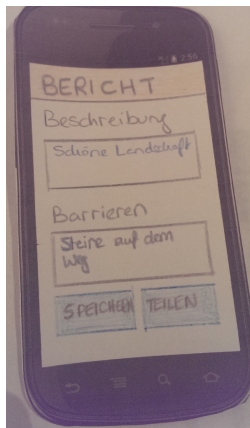 2:55
BERICHT
Beschreibung
Schöne Landschaft
Barrieren
Steine auf dem
Weg
SPEICHERN
TEILEN